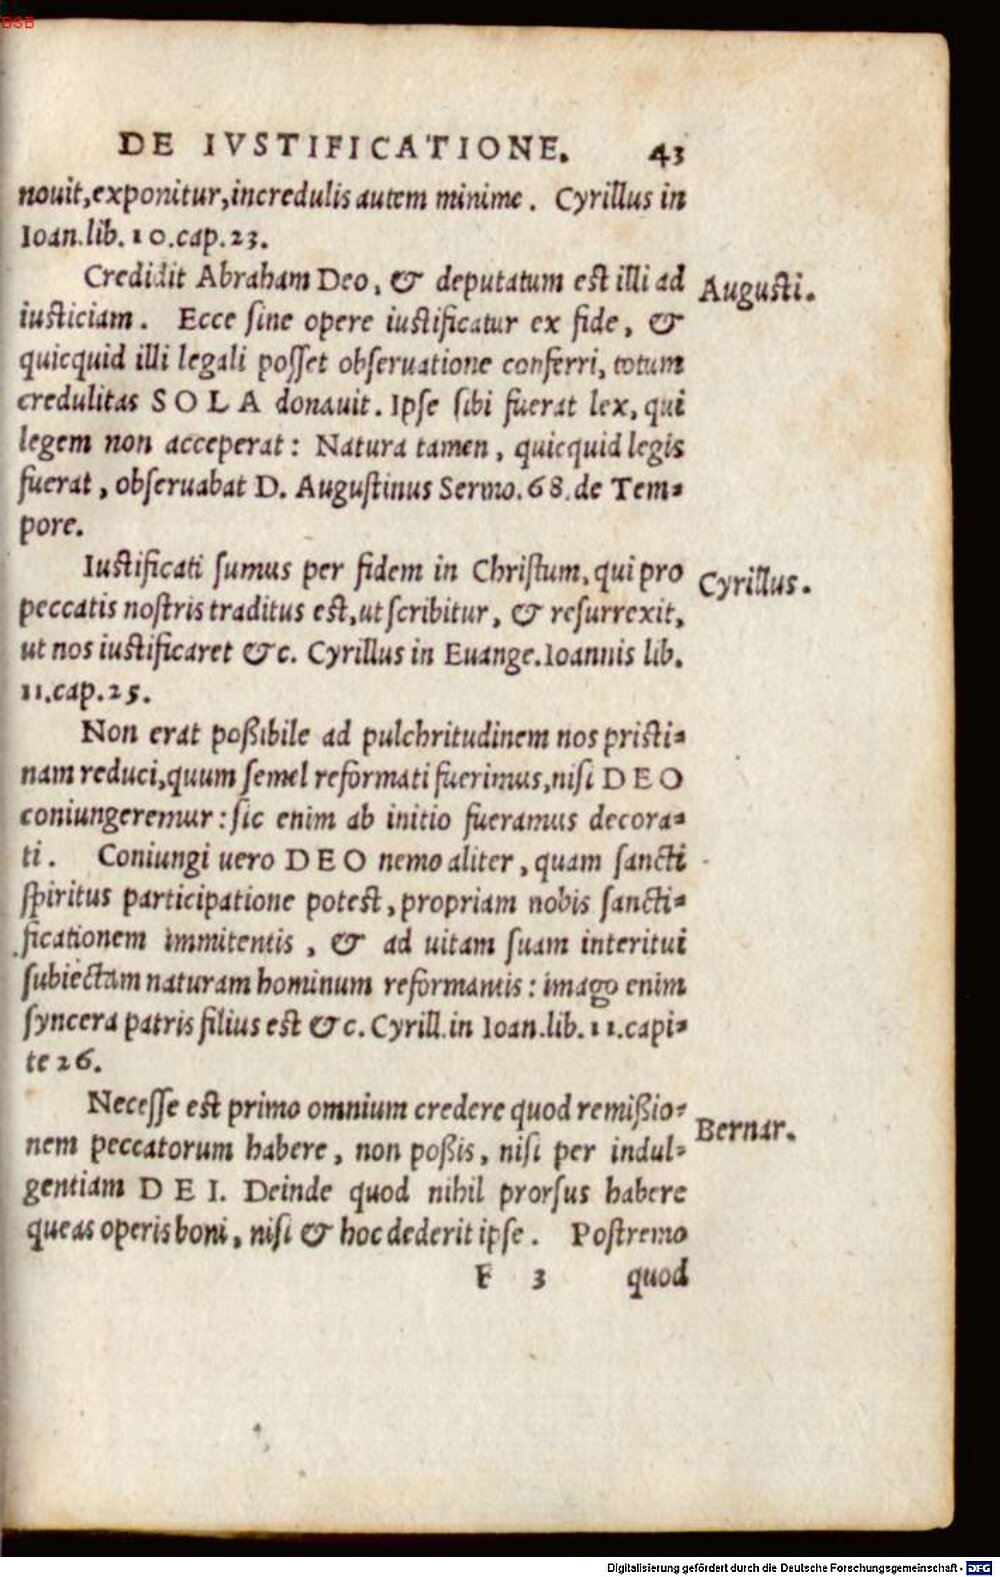 BSB
DE IVSTIFICATIONE. 43
nouit, exponitur, incredulis autem minime. Cyrillus in
Ioan. lib. 10. cap. 23.
Credidit Abraham Deo, & deputatum est illi ad
Augusti.
iusticiam. Ecce sine opere iustificatur ex fide, &
quicquid illi legali posset obseruatione conferri, totum
credulitas SOLA donauit. Ipse sibi fuerat lex, qui
legem non acceperat: Natura tamen, quicquid legis
fuerat, obseruabat D. Augustinus Sermo. 68. de Tem=
pore.
Iustificati sumus per fidem in Christum, qui pro
Cyrillus.
peccatis nostris traditus est, ut scribitur, & resurrexit,
ut nos iustificaret &c. Cyrillus in Euange. Ioannis lib.
11. cap. 25.
Non erat poßibile ad pulchritudinem nos pristi=
nam reduci, quum semel reformati fuerimus, nisi DEO
coniungeremur: sic enim ab initio fueramus decora=
ti. Coniungi uero DEO nemo aliter, quam sancti
spiritus participatione potest, propriam nobis sancti=
ficationem immitentis, & ad uitam suam interitui
subiectam naturam hominum reformantis: imago enim
syncera patris filius est &c. Cyrill. in Ioan. lib. 11. capi=
te 26.
Necesse est primo omnium credere quod remißio=
Bernar.
nem peccatorum habere, non poßis, nisi per indul=
gentiam DEI. Deinde quod nihil prorsus habere
queas operis boni, nisi & hoc dederit ipse. Postremo
F 3 quod
Digitalisierung gefördert durch die Deutsche Forschungsgemeinschaft - DFG